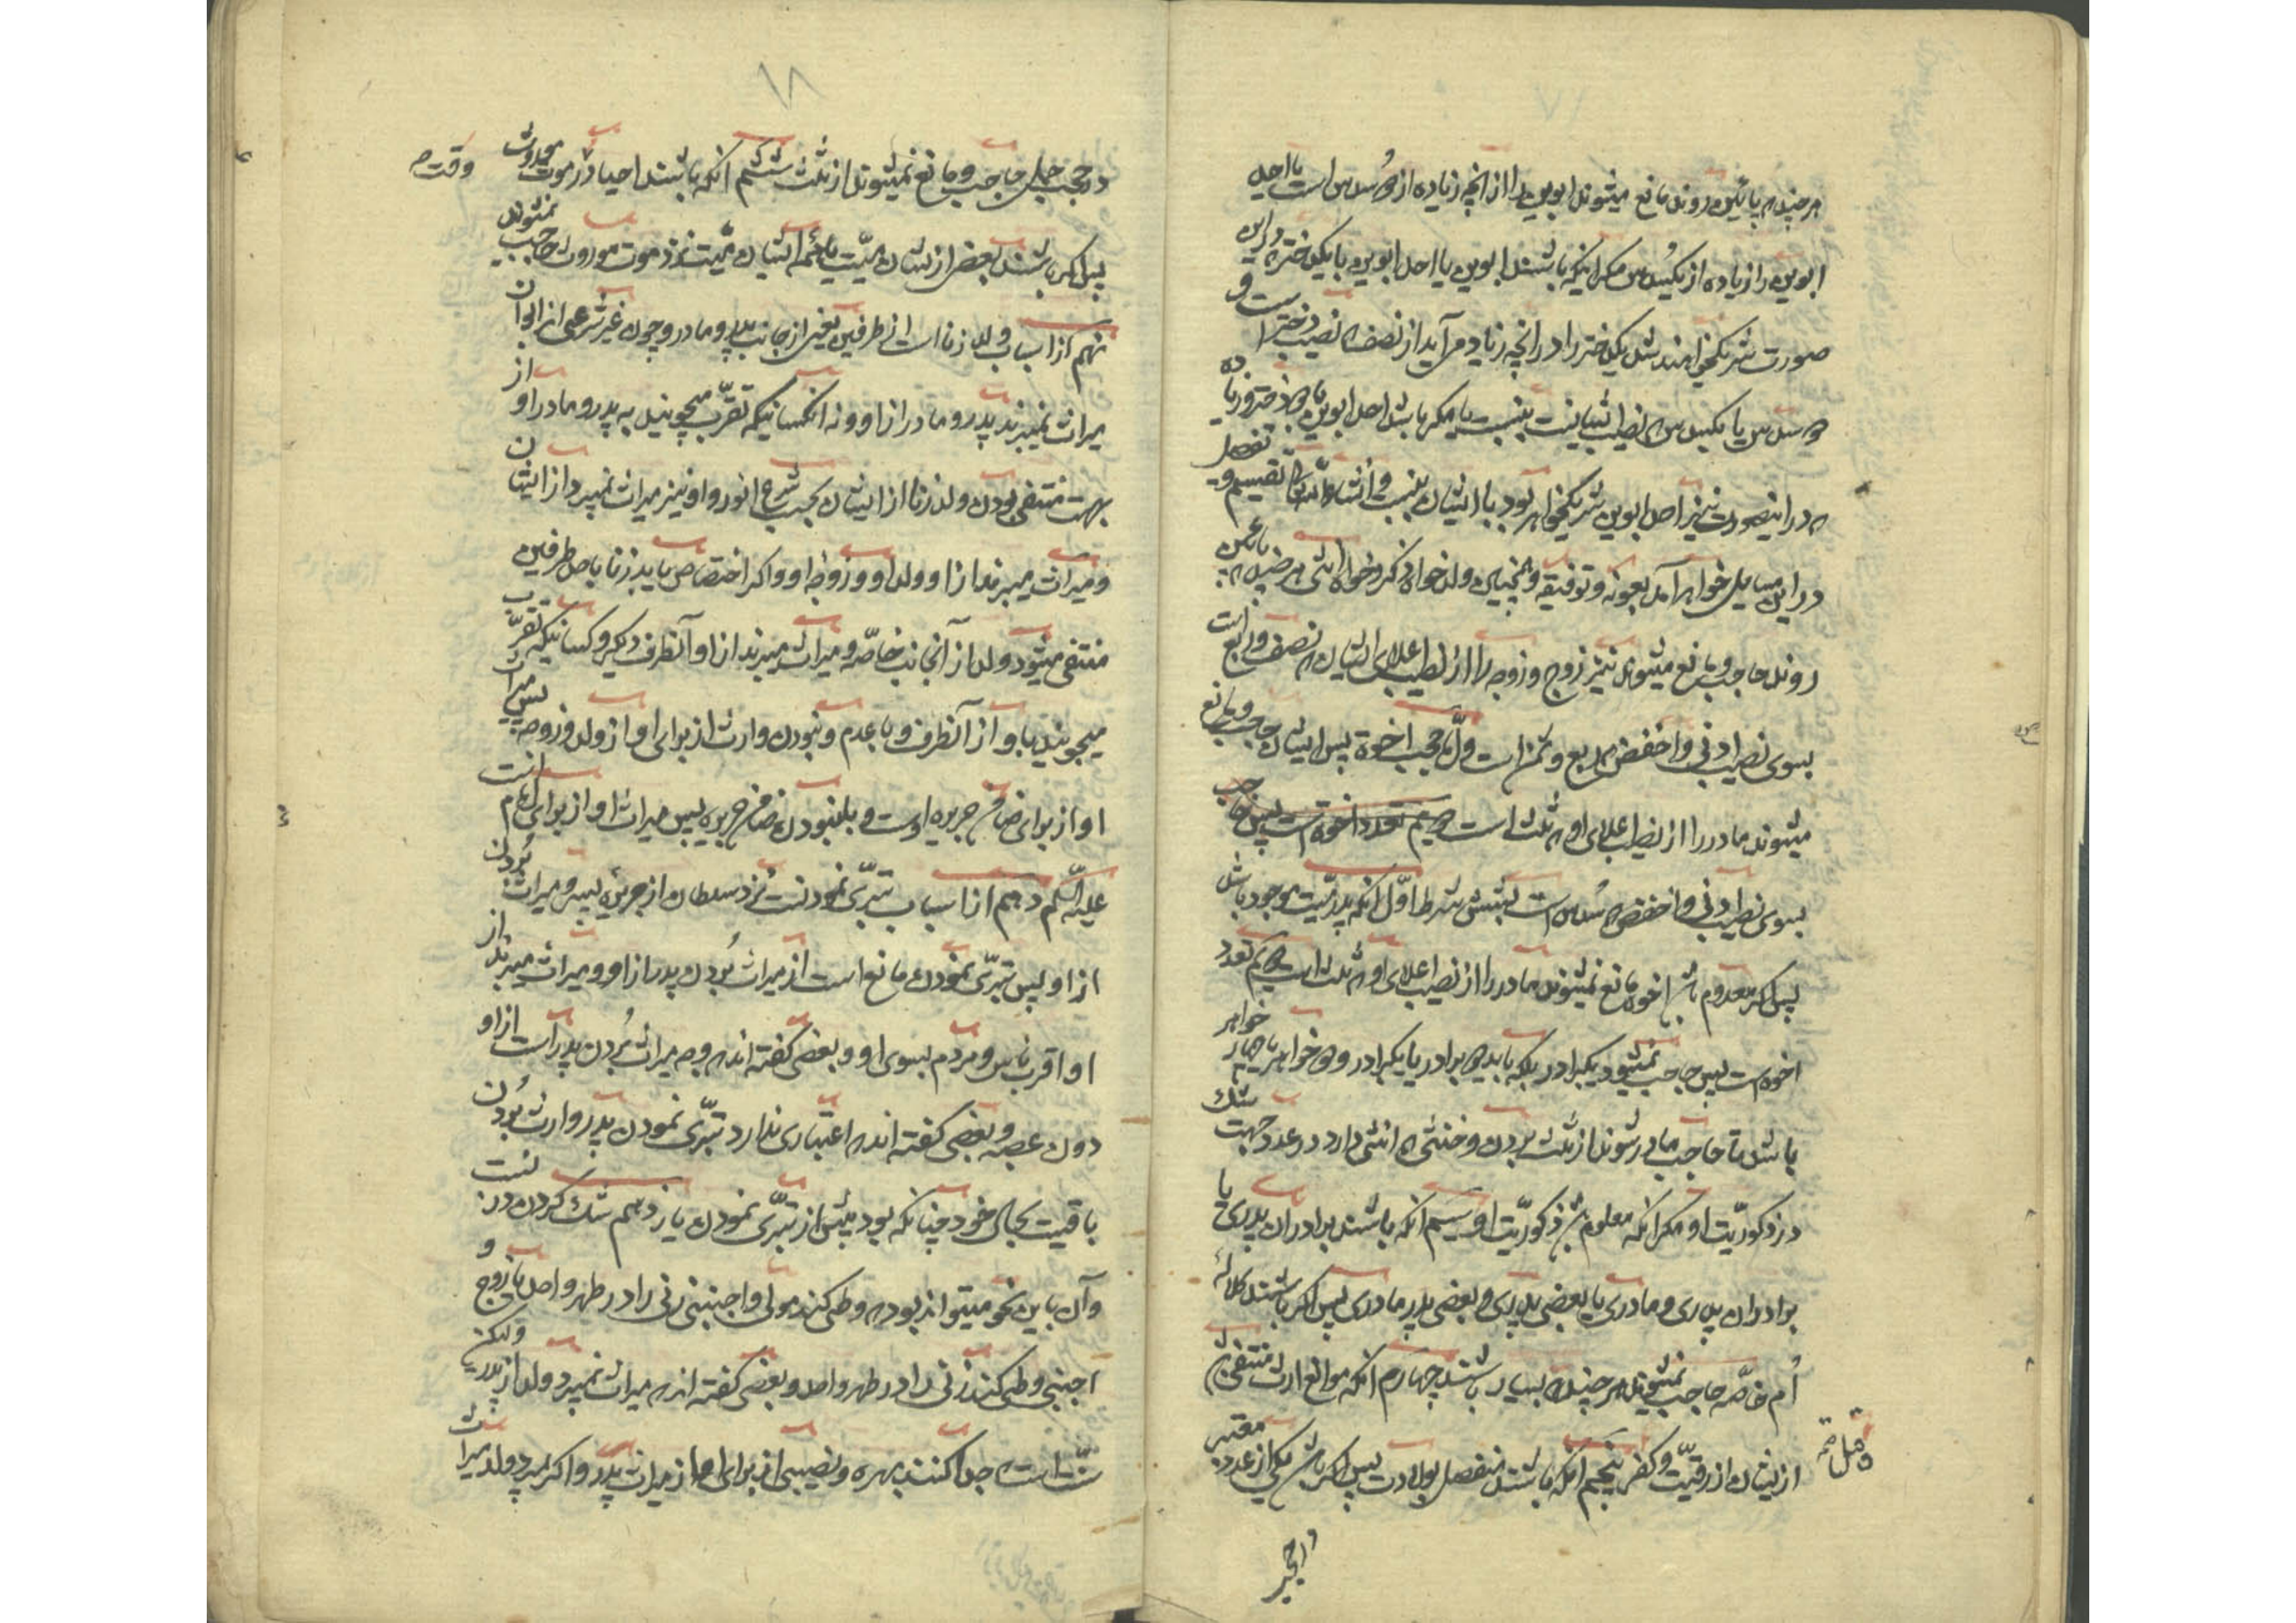 هر چند که پائین روند مانع میشوند ابوین را از آنچه زیاده از دو سدس است یا احد
ابوین را زیاده از یکسدس مگر اینکه باشند ابوین یا احد ابوین با یکدختر که در این
صورت شریک خواهند شد یکدختر را در آنچه زیاد می آید از نصف که نصیب دختر است و
دو سدس یا یکسدس که نصیب ایشانست بنسبت یا مگر باشد احد ابوین با دو دختر و زیاده
که در اینصورت نیز احد ابوین شریک خواهد بود با ایشان بنسبت و انشاء الله تقسیم و تفصیل
در این مسایل خواهد آمد بعونه و توفیقه و همچنین ولد خواه ذکر و خواه انثی هر چند که پائین
روند حاجب و مانع میشوند نیز زوج و زوجه را از نصیب اعلای ایشان که نصف و ربع است
بسوی نصیب ادنی و اخفض که ربع و ثمن است و اما حجب اخوة پس ایشان حاجب و مانع
میشوند مادر را از نصیب اعلای او که ثلث است
بسوی نصیب ادنی و اخفض که سدس است بشش شرط اول آنکه پدر میت موجود باشد
پس اگر معدوم باشد اخوه مانع نمیشوند مادر را از نصیب اعلای او که ثلث است دویم تعدد
اخوه است پس حاجب نمیشود یکبرادر بلکه باید دو برادر یا یکبرادر و دو خواهر یا چهار خواهر
باشد تا حاجب مادر شوند از ثلث بردن و خنثی حکم انثی دارد در عدد جهت شک
در ذکوریت او مگر آنکه معلوم شود ذکوریت او سیم آنکه باشند برادران پدری یا
برادران پدری و مادری یا بعضی پدری و بعضی پدر مادری پس اگر باشند کلاله
ام خاصه حاجب نمیشوند هر چند که بسیار باشند چهارم آنکه موانع ارث منتفی باشد
از ایشان از رقیت و کفر پنجم آنکه باشند منفصل بولادت پس اگر باشد یکی از عدد معتبر
در حجب حمل حاجب و مانع نمیشوند از ثلث ششم آنکه باشند احیا در وقت موت مورث
پس اگر باشند بعضی از ایشان میت یا همه ایشان میت نزد موت مورث حاجب نمیشوند
نهم از اسباب ولد زنا است از طرفین یعنی از جانب پدر و مادر و چون غیر شرعی از ابوان
میراث نمیبرند پدر و مادر از او و نه آنکسانیکه تقرب میجویند به پدر و مادر او از
جهت منتفی بودن ولد زنا از ایشان بحسب شرع انور و او نیز میراث نمیبرد از ایشان
و میراث میبرند از او ولد او و زوجه او و اگر اختصاص یابد زنا باحد طرفین
منتفی میشود ولد از آنجانب خاصه و میراث میبرند از او آنطرف دیگر و کسانیکه تقرب
میجویند باو از آنطرف و با عدم و نبودن وارث از برای او از ولد و زوجه پس میراث
او از برای ضامن جریره اوست و با نبودن ضامن جریره پس میراث او از برای امام است
علیه السلم دهم از اسباب تبری نمودنست نزد سلطان از جریره پسر و میراث بردن
از او پس تبری نمودن مانع است از میراث بردن پدر از او و میراث میبرند از
او اقرب ناس و مردم بسوی او و بعضی گفته اند که وجه میراث بردن پدر است از او
دون عصبه و بعضی گفته اند که اعتباری ندارد تبری نمودن پدر و ارث بردن
باقیست بحال خود چنانکه بود پیش از تبری نمودن یازدهم شک کردن در نسبت
و آن باین نحو میتواند بود که وطی کند مولی و اجنبی زنی را در طهر واحد یا زوج و
اجنبی وطی کند زنی را در طهر واحد و بعضی گفته اند که میراث نمیبرد ولد از پدر ولیکن
سنت است که جدا کنند بهره و نصیبی از برای او از میراث پدر و اگر بمیرد ولد میراث